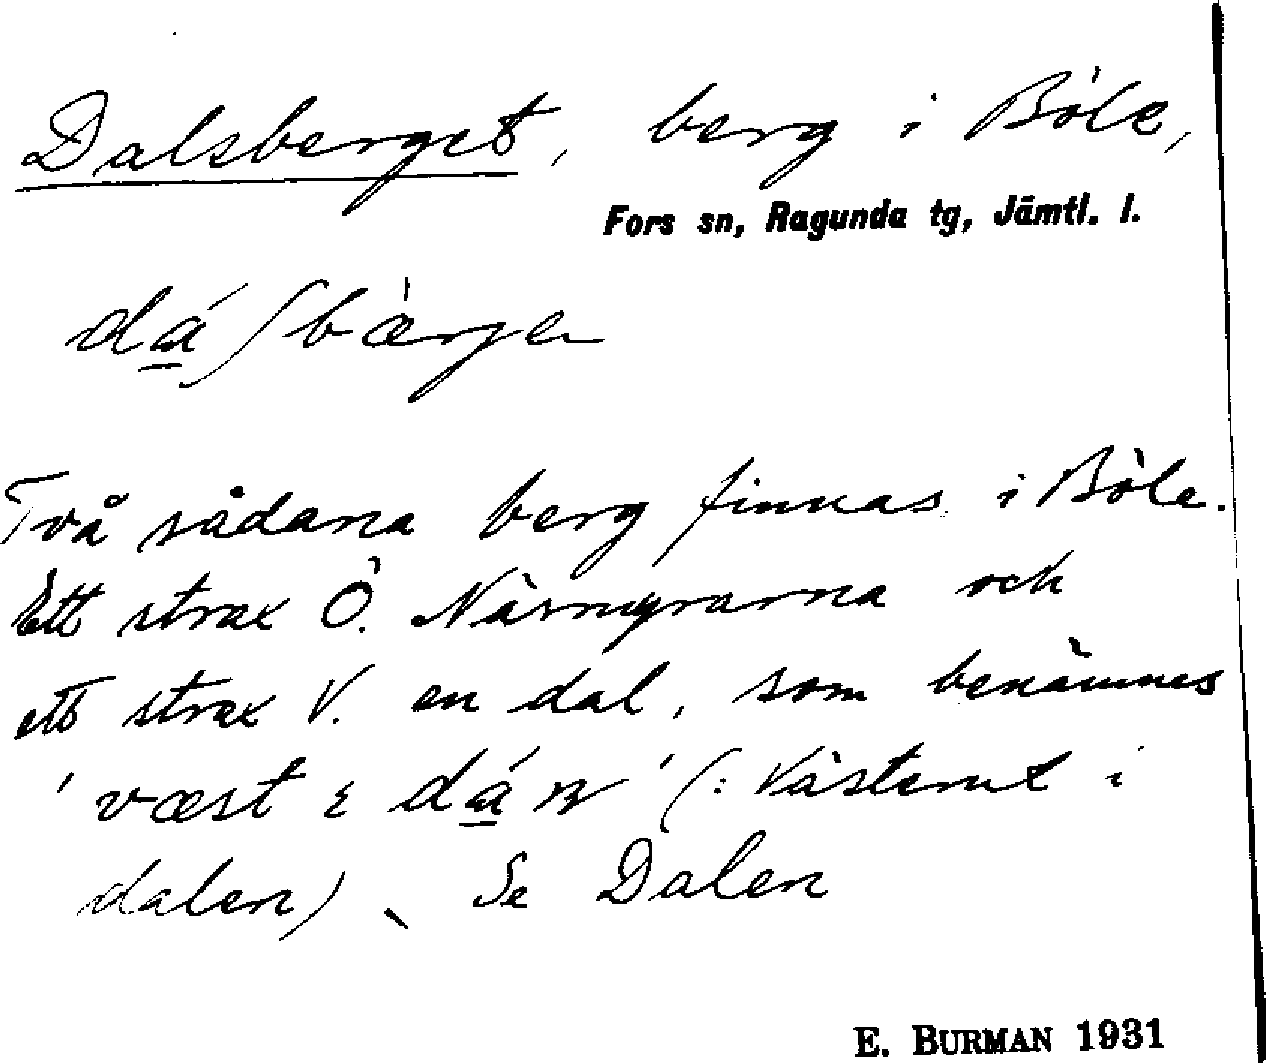 Dalsberget, berg i Böle,
Fors sn, Ragunda tg, Jämtl. l.
dáʃbærge
Två sådana berg finnas i Böle.
Ett strax Ö. Näsmyrarna och
ett strax V. en dal, som benämnes
'væst i dán' (: Västerut i
dalen). Se Dalen
E. BURMAN 1931